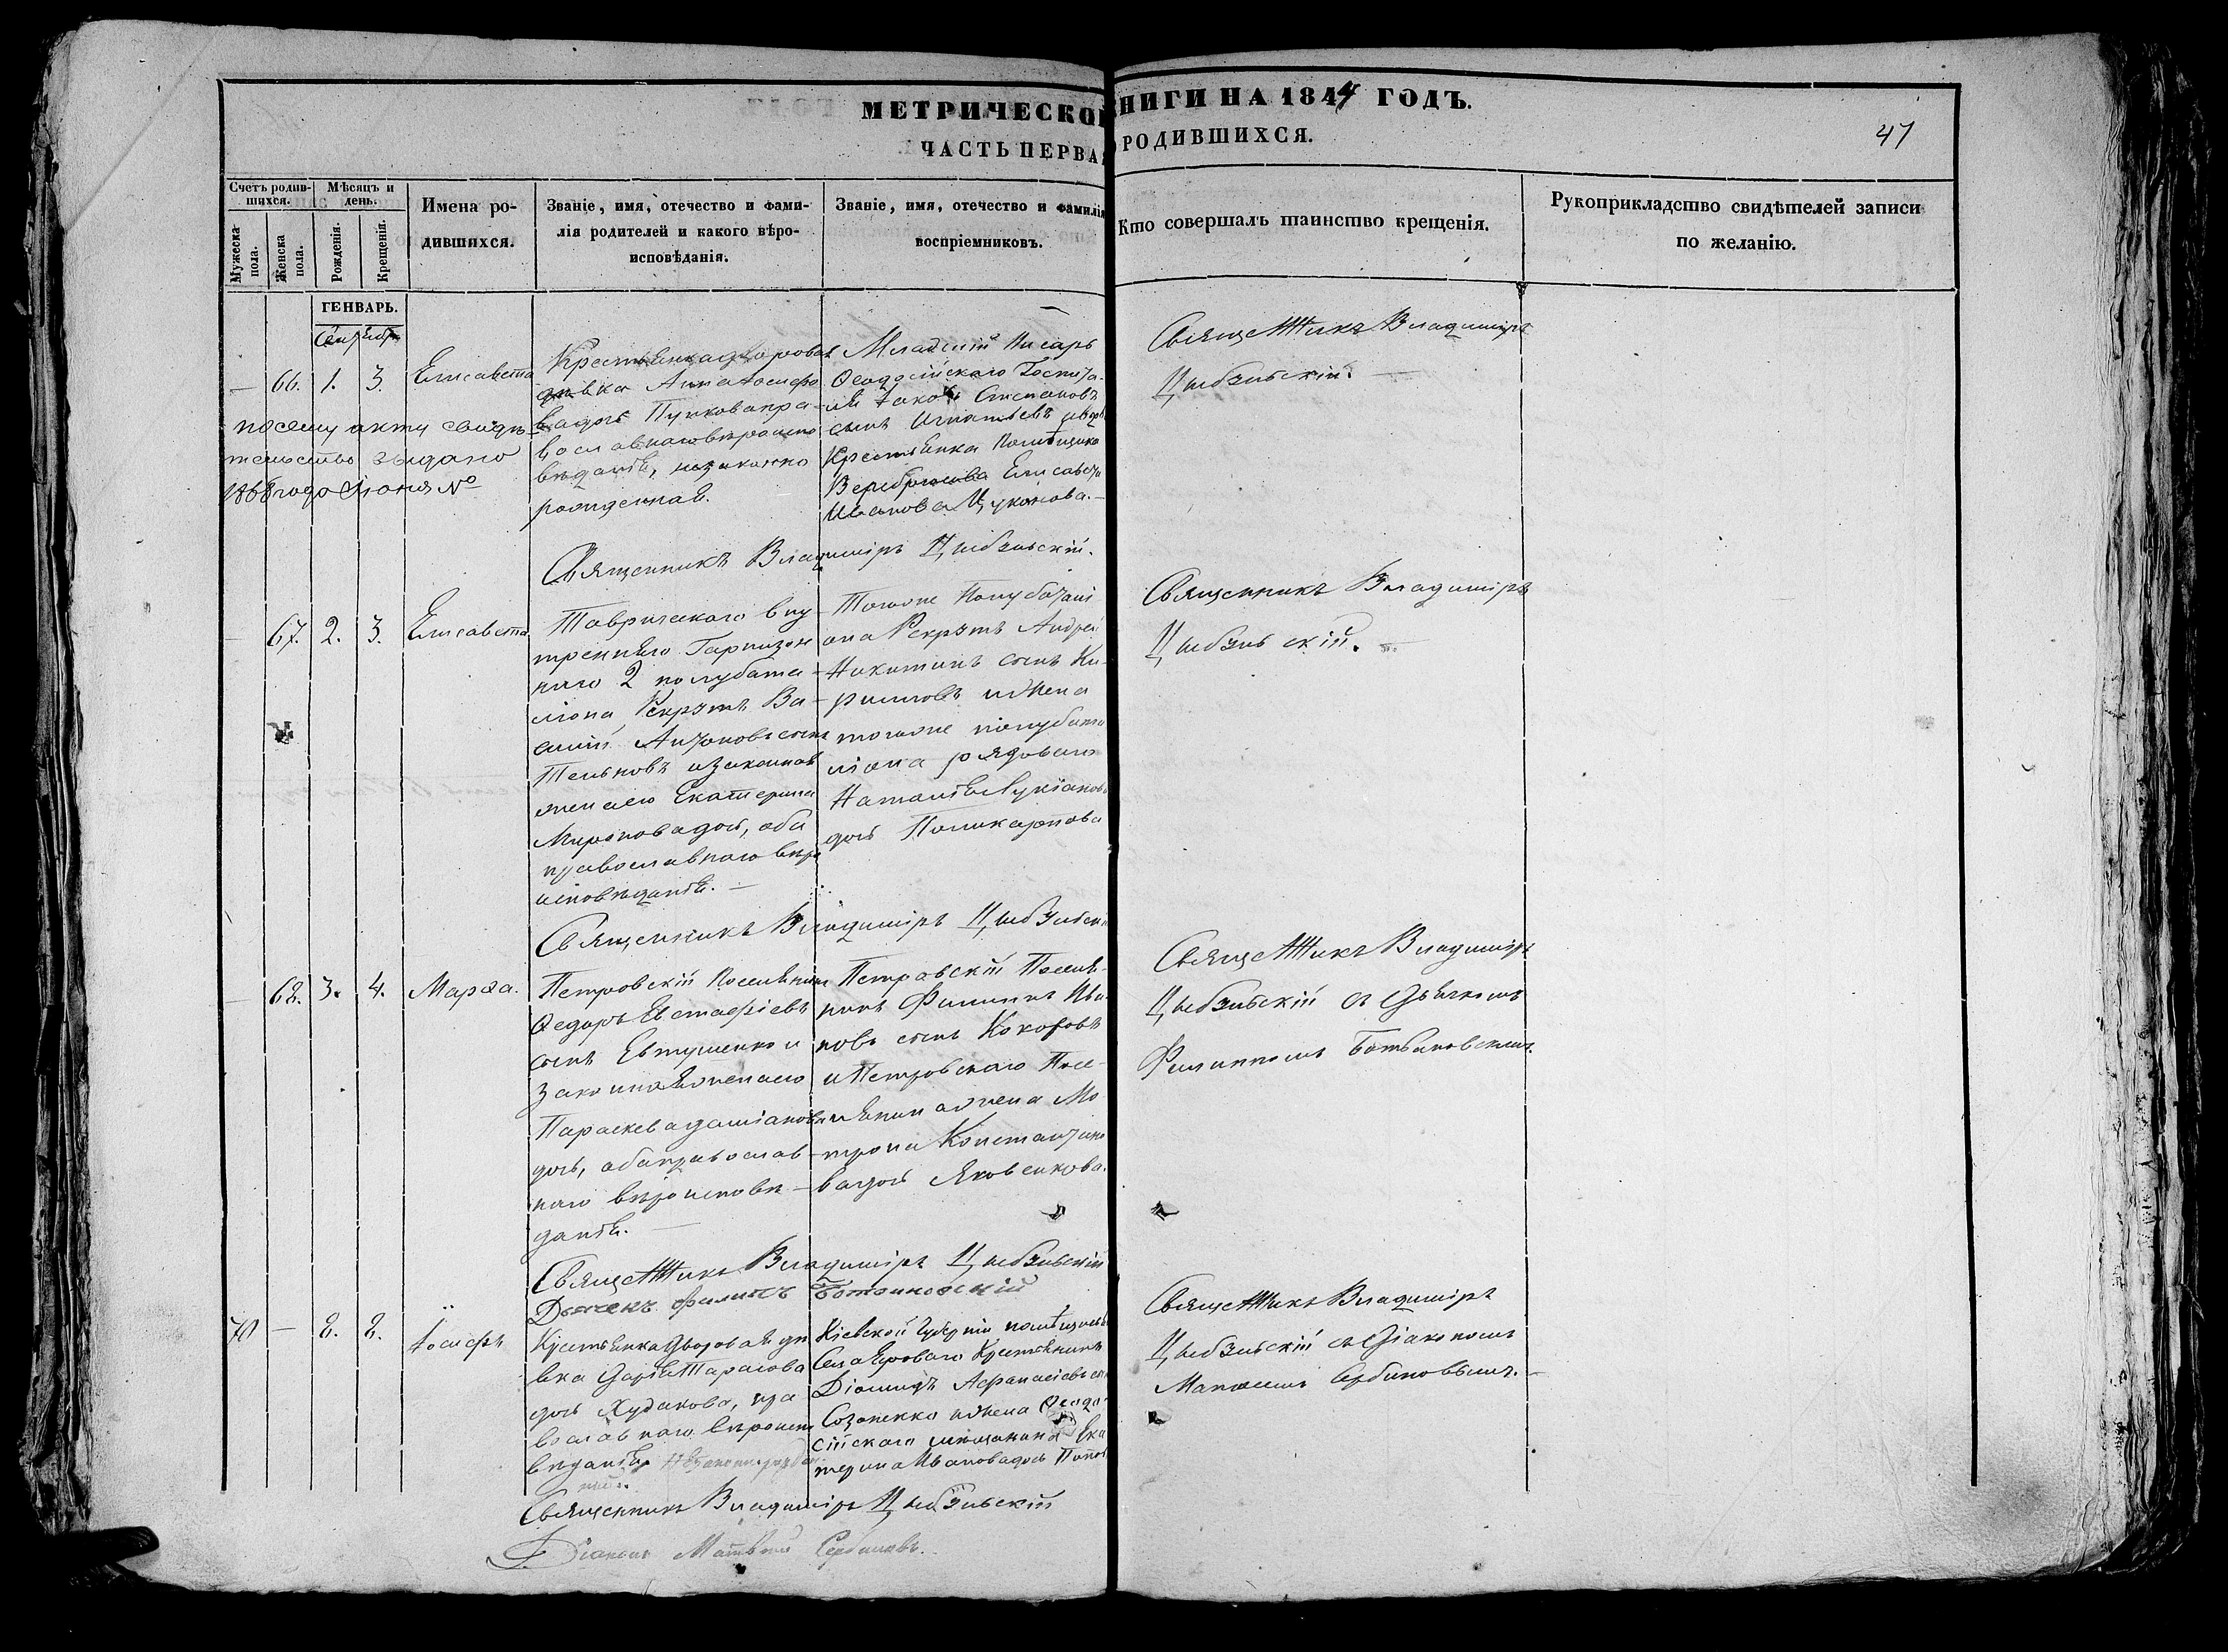 МЕТРИЧЕСКОЙ КНИГИ НА 1844 ГОДЪ.
ЧАСТЬ ПЕРВАЯ РОДИВШИХСЯ.
47
Счетъ родив-
шихся.
Мѣсяцъ и
день.
Мужеска
пола.
Женска
пола.
Рожденія.
Крещенія.
Имена ро-
дившихся.
Званіе, имя, отечество и фами-
лія родителей и какого вѣро-
исповѣданія.
Званіе, имя, отечество и фамилія
воспріемниковъ.
Кто совершалъ таинство крещенія.
Рукоприкладство свидѣтелей записи
по желанію.
ГЕНВАРЬ.
Сентябрь
— 66. 1. 3. Елисавета
Крестьянка дворовая
дѣвка Анна Іосифо
ва дочь Пучкова пра-
вославнаго вѣроиспо
вѣданія, незаконно
рожденная.
Младшій Писарь
Ѳеодосійскаго Госпита-
ля Іаковъ Степановъ
сынъ Игнатьевъ и двор
Крестьянка Помѣщика
Елисавета
Иванова Цуканова.—
Священникъ Владиміръ
Цыбульскій.—
по сему акту свидѣ-
тельство выдано
1868 года Іюня №
Священникъ Владиміръ Цыбульскій.
— 67. 2. 3. Елисавета.
Таврическаго вну-
тренняго Гарнизон
наго 2 полубата-
ліона Рекрутъ Ва-
силій Антоновъ сынъ
Тельновъ и законная
жена его Екатерина
Миронова дочь, оба
православнаго вѣро
исповѣданія.—
Тогоже Полубатали
она Рекрутъ Андрей
Никитинъ сынъ Ки-
риловъ и жена
тогоже полубата
ліона рядоваго
Наталія Лукіанова
дочь Поликарпова
Священникъ Владиміръ
Цыбульскій.—
Священникъ Владиміръ Цыбульскій
— 68. 3. 4. Марѳа.
Петровскій Поселянинъ
Ѳедоръ Евстафіевъ
сынъ Евтушенко и
законная жена его
Параскева Даміанова
дочь, оба православ-
наго вѣроисповѣ-
данія.—
Петровскій Поселя-
нинъ Филиппъ Ива-
новъ сынъ Кокоровъ
и Петровскаго Посе-
лянина жена Ма
трона Константино
ва дочь Яковенкова.
Священникъ Владиміръ
Цыбульскій съ Дьячкомъ
Филиппомъ Ботвиновскимъ.
Священникъ Владиміръ Цыбульскій
Дьячекъ Филиппъ Ботвиновскій
70 — 8. 8. Іосифъ
Крестьянка дворовая дѣ
вка Дарія Тарасова
дочь Худакова, пра
вославнаго вѣроиспо
вѣданія, незаконнорожден
ный.
Кіевской Губерніи помѣщичьяго
Села Крестьянинъ
Діомидъ Афанасіевъ сынъ
Созоненко и жена Ѳеодо-
сійскаго мѣщанина Ека
терина Иванова дочь Попова
Священникъ Владиміръ
Цыбульскій съ Діакономъ
Матвеемъ Сербиновымъ.—
Священникъ Владиміръ Цыбульскій
Діаконъ Матвѣй Сербиновъ.